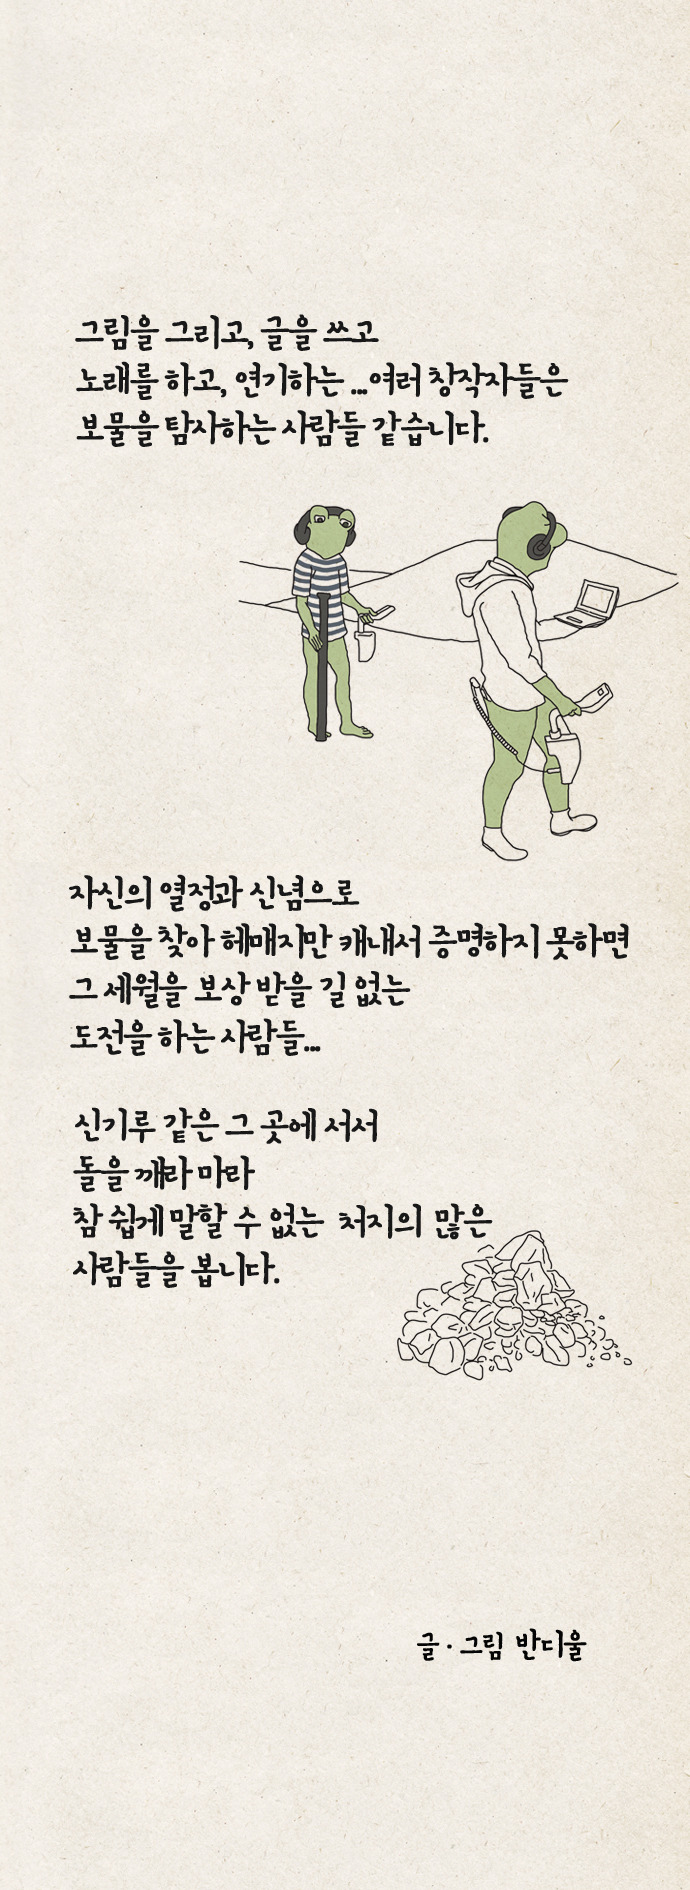 그림을 그리고, 글을 쓰고
노래를 하고, 연기하는 ...여러 창작자들은
보물을 탐사하는 사람들 같습니다.
자신의 열정과 신념으로
보물을 찾아 헤매지만 캐내서 증명하지 못하면
그 세월을 보상 받을 길 없는
도전을 하는 사람들...
신기루 같은 그 곳에 서서
돌을 깨라 마라
참 쉽게 말할 수 없는 처지의 많은
사람들을 봅니다.
글 · 그림 반디울